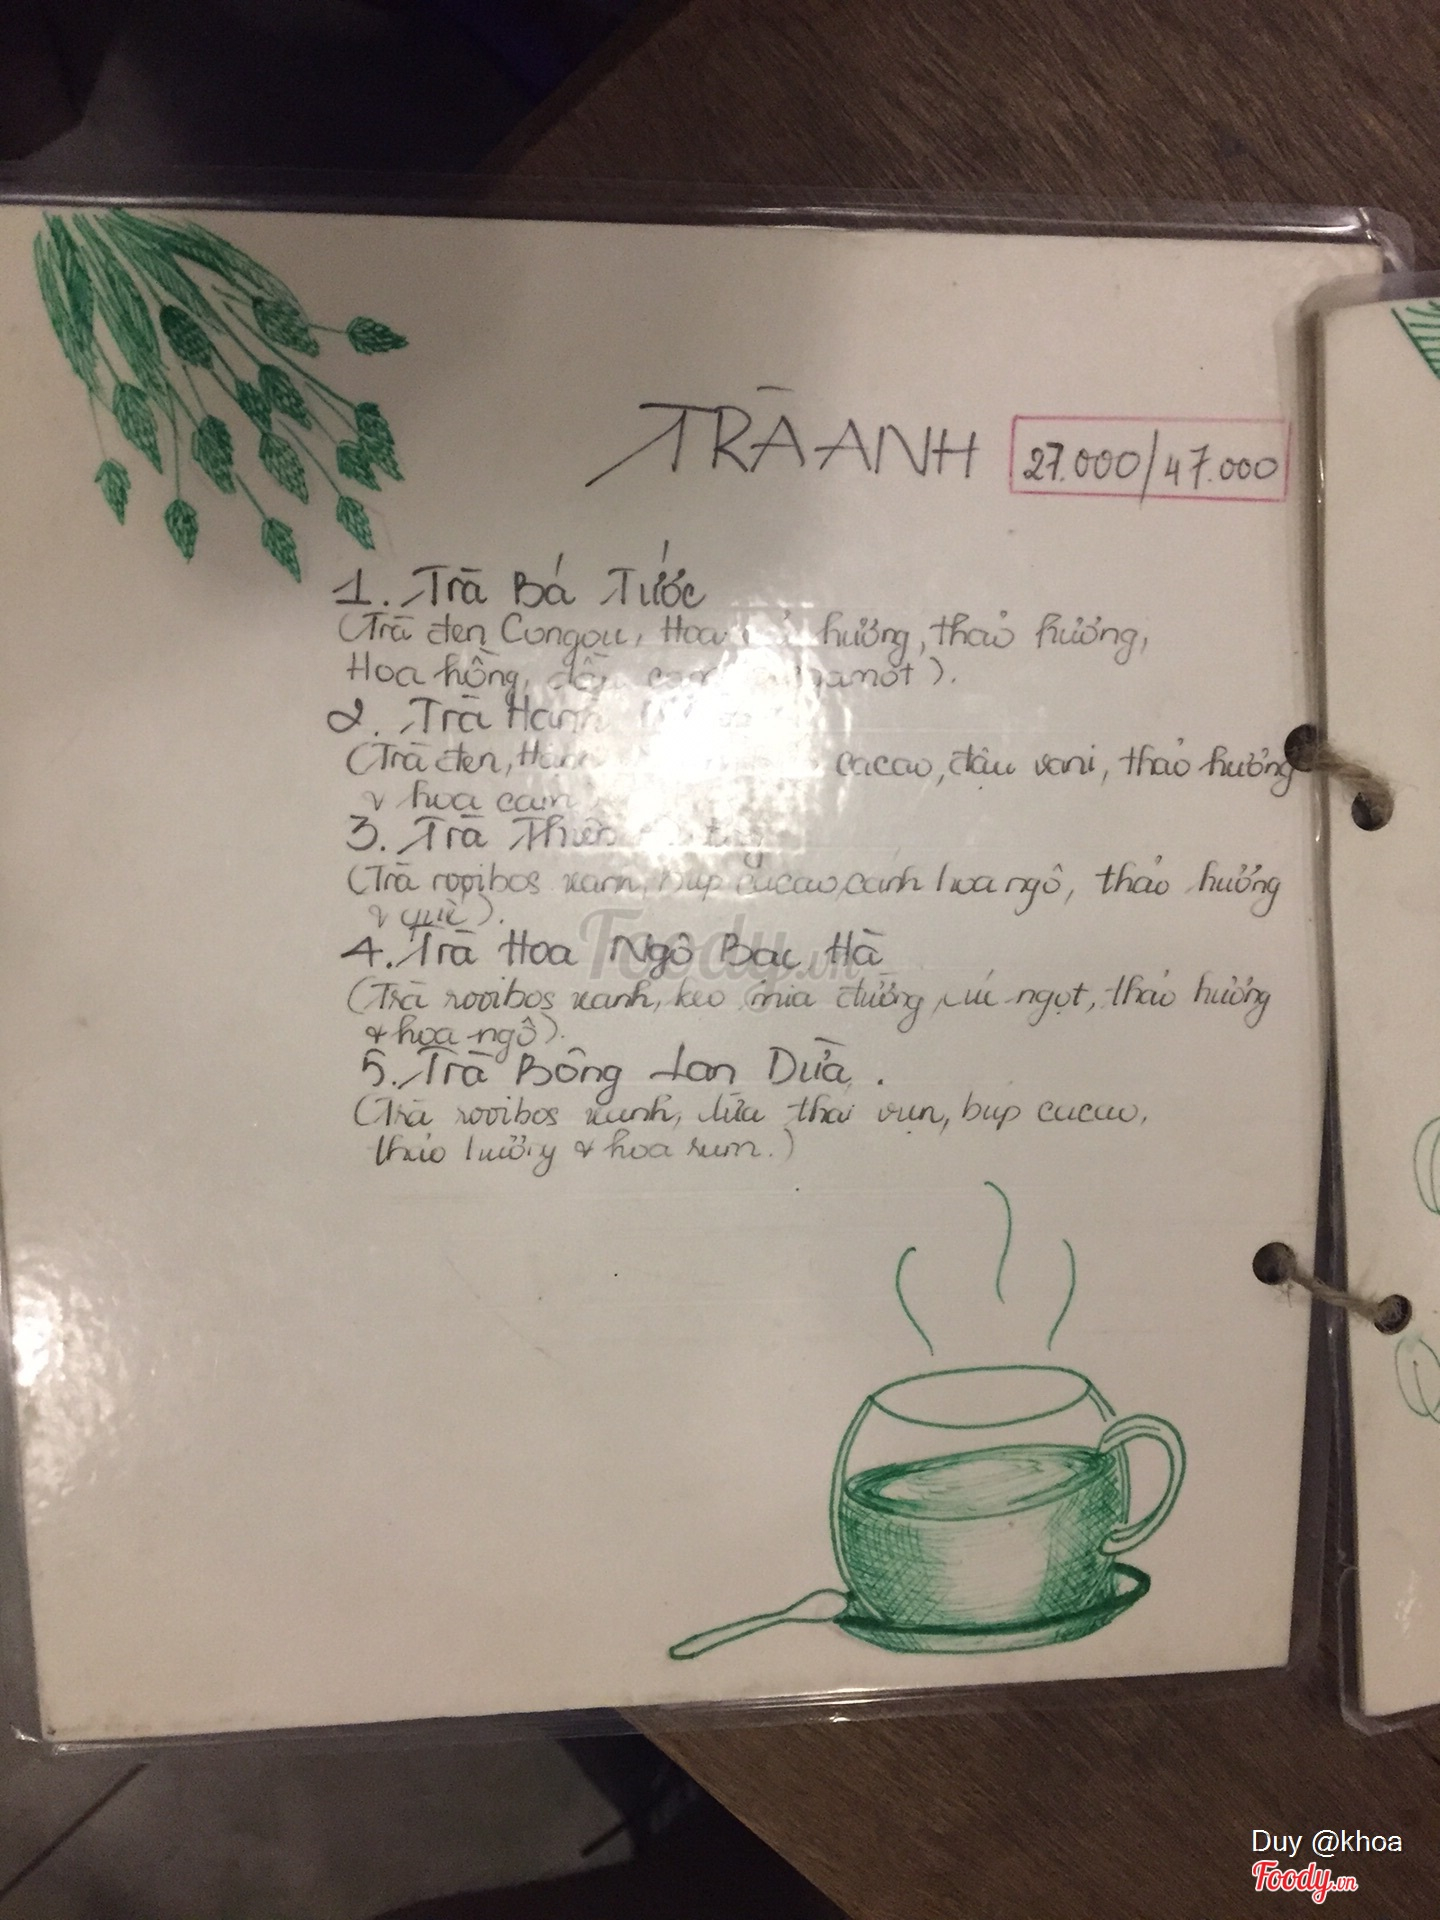 TRÀ ANH 27.000/47.000
1. Trà Bá Tước
(Trà đen Congou, Hoa hướng, thảo hướng,
Hoa hồng, dầu cam).
2. Trà Hạnh
(Trà đen, cacao, đậu vani, thảo hướng
& hoa cam
3. Trà
(Trà rooibos xanh, búp cacao, cánh hoa ngô, thảo hướng
& quế).
4. Trà Hoa Ngô Bạc Hà
(Trà rooibos xanh, kẹo mía đường, ngọt, thảo hướng
& hoa ngô).
5. Trà Bông Lan Dừa.
(Trà rooibos xanh, dừa thái vụn, búp cacao,
thảo hướng & hoa rum.)
Foody.vn
Duy @khoa
Foody.vn